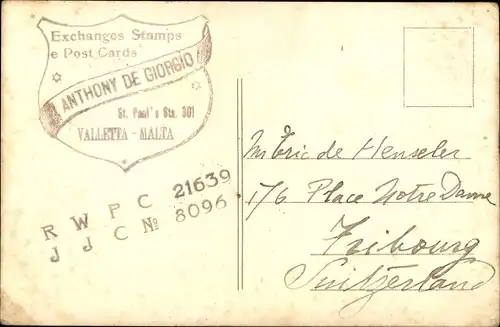 Exchanges Stamps
e Post Cards
ANTHONY DE GIORGIO
St. Paul's Str. 301
VALLETTA - MALTA
R W P C 21639
J J C № 8096
Mr Eric de Henseler
176 Place Notre Dame
Fribourg
Switzerland